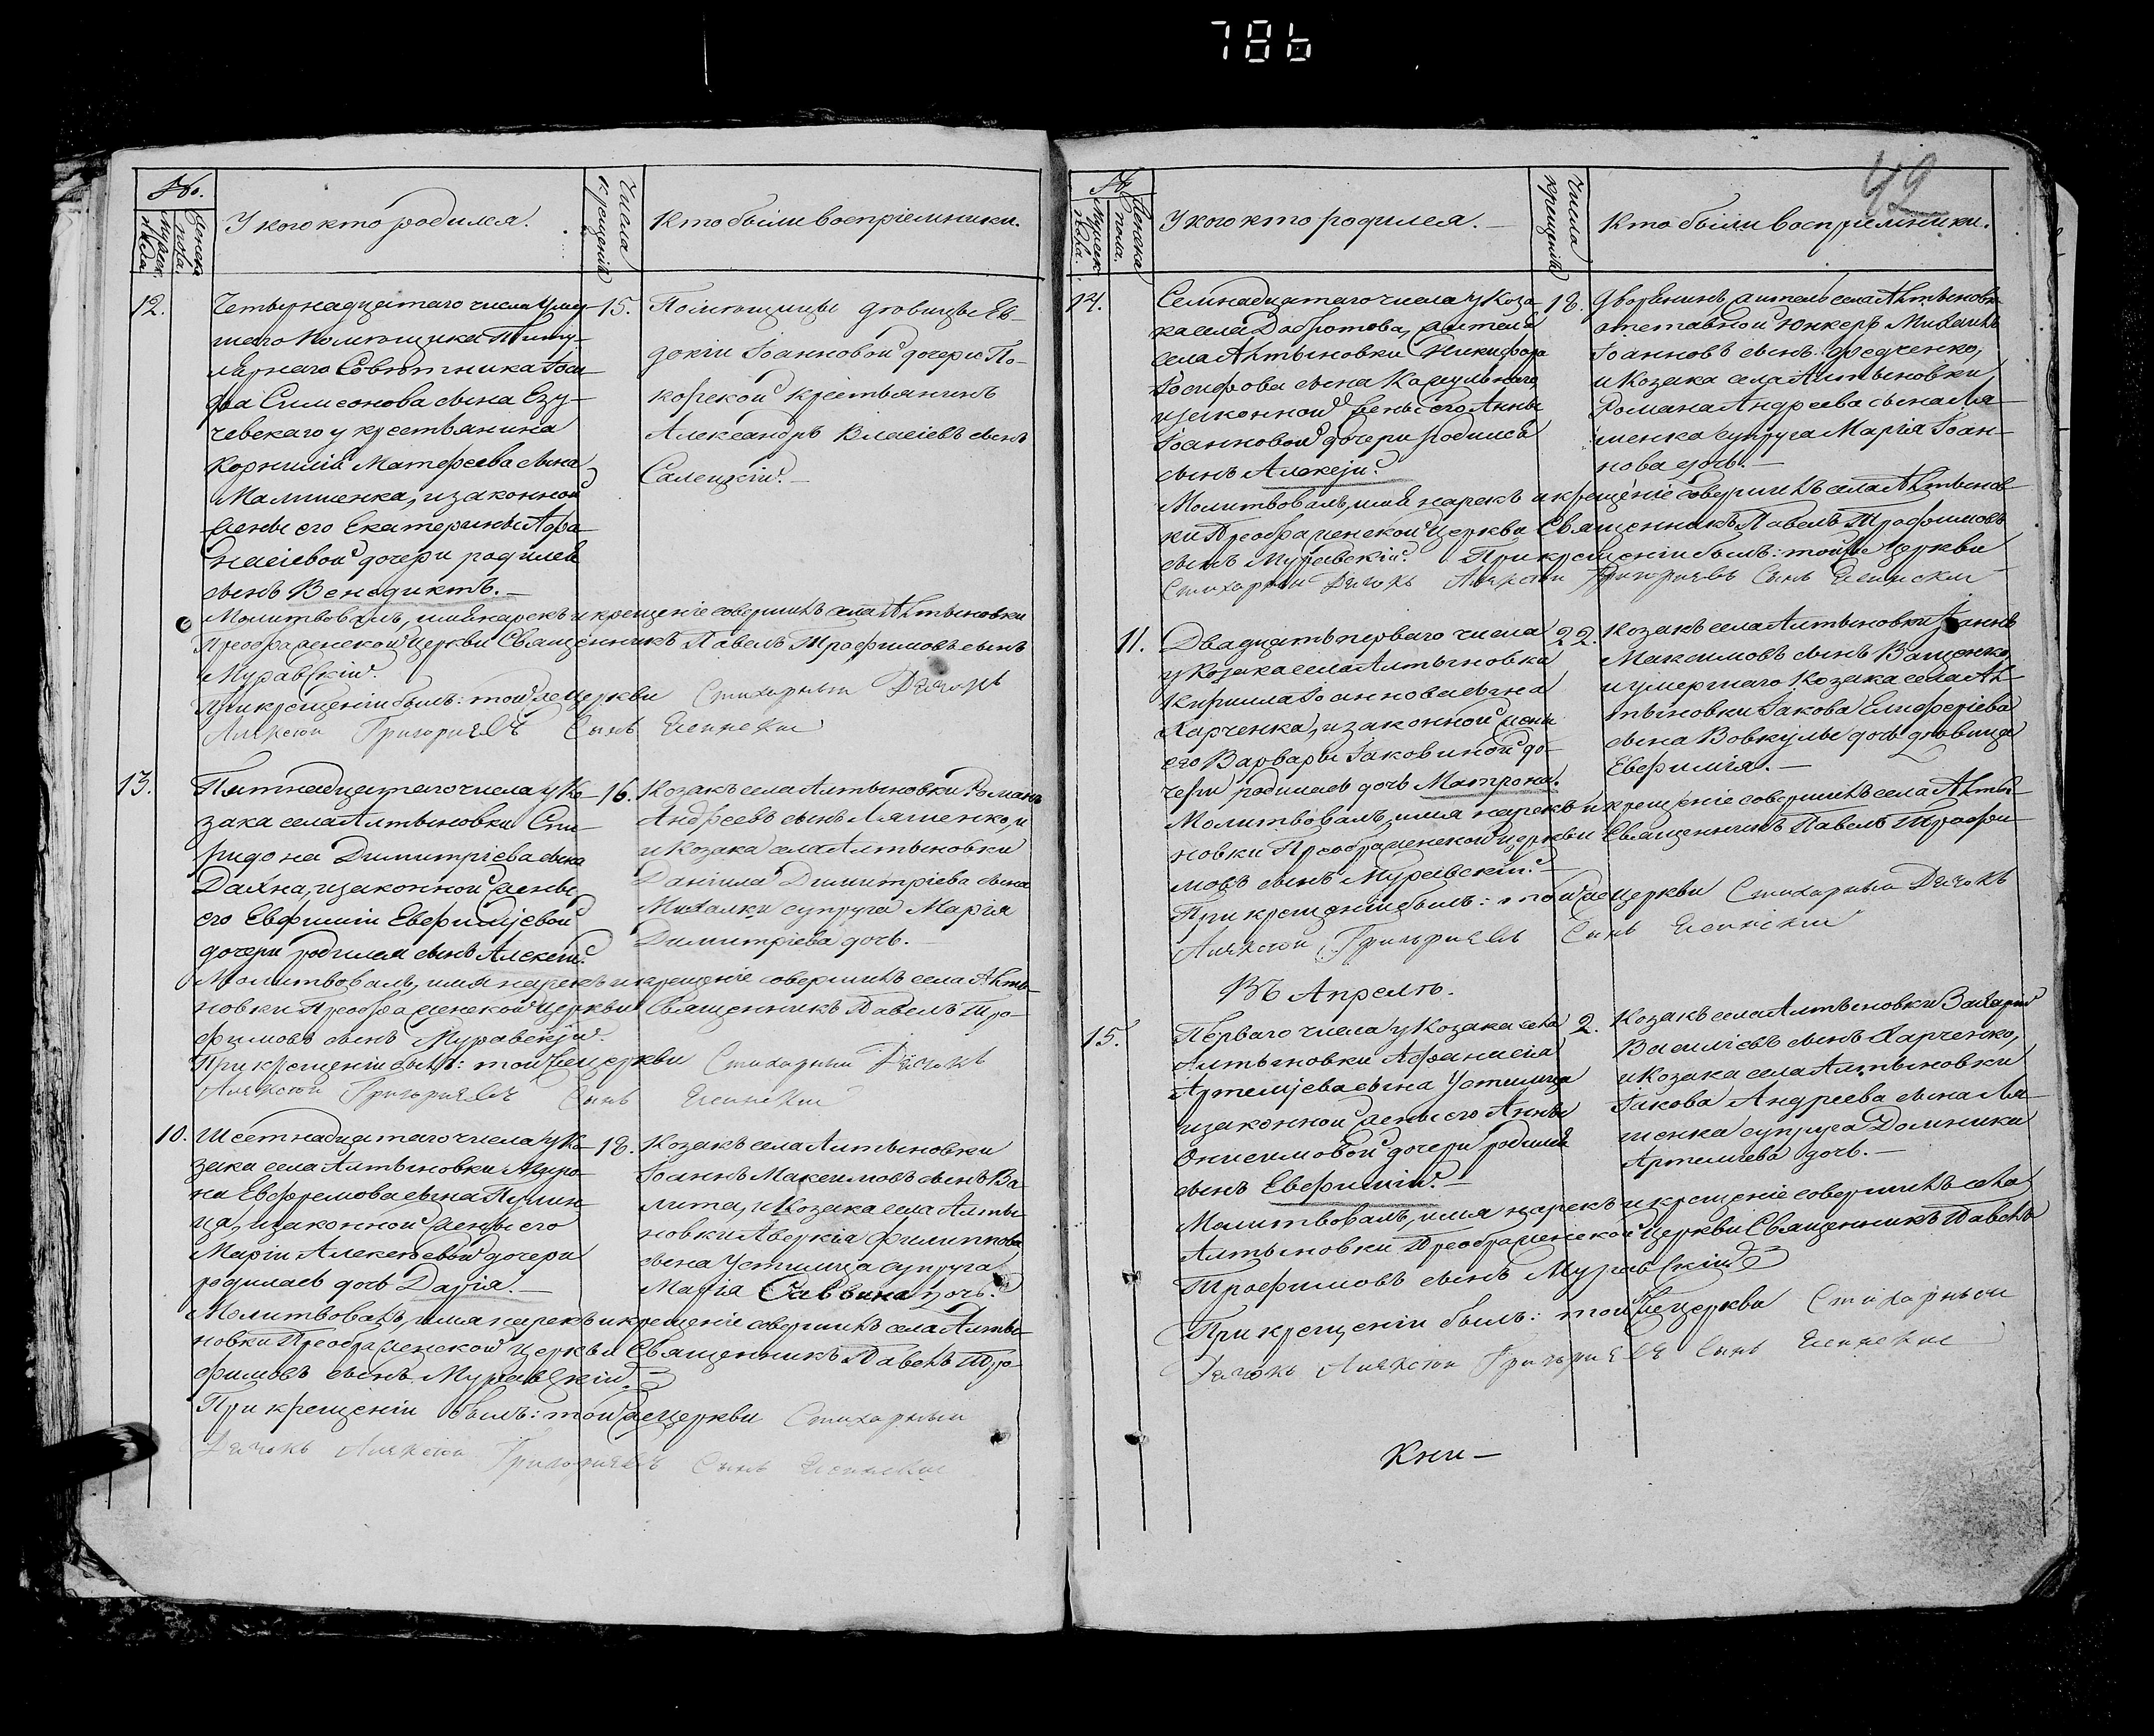 786
42
№.
Мужеска пола
Женска пола
У кого кто родился.
Числа крещенія
Кто были воспріемники.
12.
Четырнадцатаго числа умер-
шаго помѣщика Титу-
лярнаго Совѣтника Іоси-
фа Симеонова сына Езу-
чевскаго у крестьянина
Корнилія Матфеева сына
Малишенка, и законной
жены его Екатерины Афа-
насіевой дочери родился
сынъ Венедиктъ.
15.
Помѣщицы дѣвицы Ев-
докіи Іоанновой дочери По-
корской крестьянинъ
Александръ Власіевъ сынъ
Салецкій.
Молитвовалъ, имя нарекъ и крещеніе совершилъ села Алтыновки
Преображенской Церкви Священникъ Павелъ Трофимовъ сынъ
Муравскій.
При крещеніи былъ: той же церкви Стихарный Дячокъ
Алексѣй Григориевъ Сынъ
13.
Пятнадцатаго числа у Ко-
зака села Алтыновки Спи-
ридона Димитріева сына
Дахна, и законной жены
его Евфиміи Евфиміевой
дочери родился сынъ Алексій.
16.
Козакъ села Алтыновки Романъ
Андреевъ сынъ Ляшенко, и
и Козака села Алтыновки
Даніила Димитріева сына
Михалки супруга Марія
Димитріева дочь.
Молитвовалъ, имя нарекъ и крещеніе совершилъ села Алты-
новки Преображенской Церкви Священникъ Павелъ Тро-
фимовъ сынъ Муравскій.
При крещеніи былъ: той же церкви Стихарный Дячокъ
Алексѣй Григориевъ Сынъ
10.
Шестнадцатаго числа у Ко-
зака села Алтыновки Миро-
на Евфремова сына Пулин-
ца, и законной жены его
Маріи Алексѣевой дочери
родилась дочь Дарія.
18.
Козакъ села Алтыновки
Іоаннъ Максимовъ сынъ Ва-
лита, и Козака села Алты-
новки Аверкія Филиппова
сына Устимца супруга
Марія Саввина дочь.
Молитвовалъ, имя нарекъ и крещеніе совершилъ села Алты-
новки Преображенской Церкви Священникъ Павелъ Тро-
фимовъ сынъ Муравскій.
При крещеніи былъ: той же церкви Стихарный
Дячокъ Алексѣй Григориевъ Сынъ
№
Мужеск пола.
Женска пола.
У кого кто родился.
Числа крещенія
Кто были воспріемники.
14.
Семнадцатаго числа у Коза-
ка села Добротова, жителя
села Алтыновки Никифора
Іосифова сына
и законной жены его Анны
Іоанновой дочери родился
сынъ Алексѣй.
18.
Дворянинъ житель села Алтыновки
отставной Юнкеръ Михаилъ
Іоанновъ сынъ Федченко,
и Козака села Алтыновки
Романа Андреева сына Ля-
шенка супруга Марія Іоан-
нова дочь.
Молитвовалъ, имя нарекъ и крещеніе совершилъ села Алтынов-
ки Преображенской Церкви Священникъ Павелъ Трофимовъ
сынъ Муравскій. При крещеніи былъ: той же церкви
Стихарный Дячокъ Алексѣй Григориевъ Сынъ
11.
Двадцать перваго числа
у Козака села Алтыновка
Кирилла Іоаннова сына
Харченка, и законной жены
его Варвары Іаковиной до-
чери родилась дочь Матрона.
22.
Козакъ села Алтыновки Іоаннъ
Максимовъ сынъ Ващенко,
и умершаго Козака села Ал-
тыновки Іакова Елиферіева
сына Вовкулы дочь дѣвица
Евфимія.
Молитвовалъ, имя нарекъ и крещеніе совершилъ села Алты-
новки Преображенской Церкви Священникъ Павелъ Трофи-
мовъ сынъ Муравскій.
При крещеніи былъ: той же церкви Стихарный Дячокъ
Алексѣй Григориевъ Сынъ
Въ Апрелѣ.
15.
Перваго числа у Козака села
Алтыновки Афанасія
Артеміева сына Устимца
и законной жены его Анны
Онисимовой дочери родился
сынъ Евфимій.
2.
Козакъ села Алтыновки Захарій
Василіевъ сынъ Харченко,
и Козака села Алтыновки
Іакова Андреева сына Ля-
шенка супруга Домники
Артеміева дочь.
Молитвовалъ, имя нарекъ и крещеніе совершилъ села
Алтыновки Преображенской Церкви Священникъ Павелъ
Трофимовъ сынъ Муравскій
При крещеніи былъ: той же церкви Стихарный
Дячокъ Алексѣй Григориевъ Сынъ
Кни-